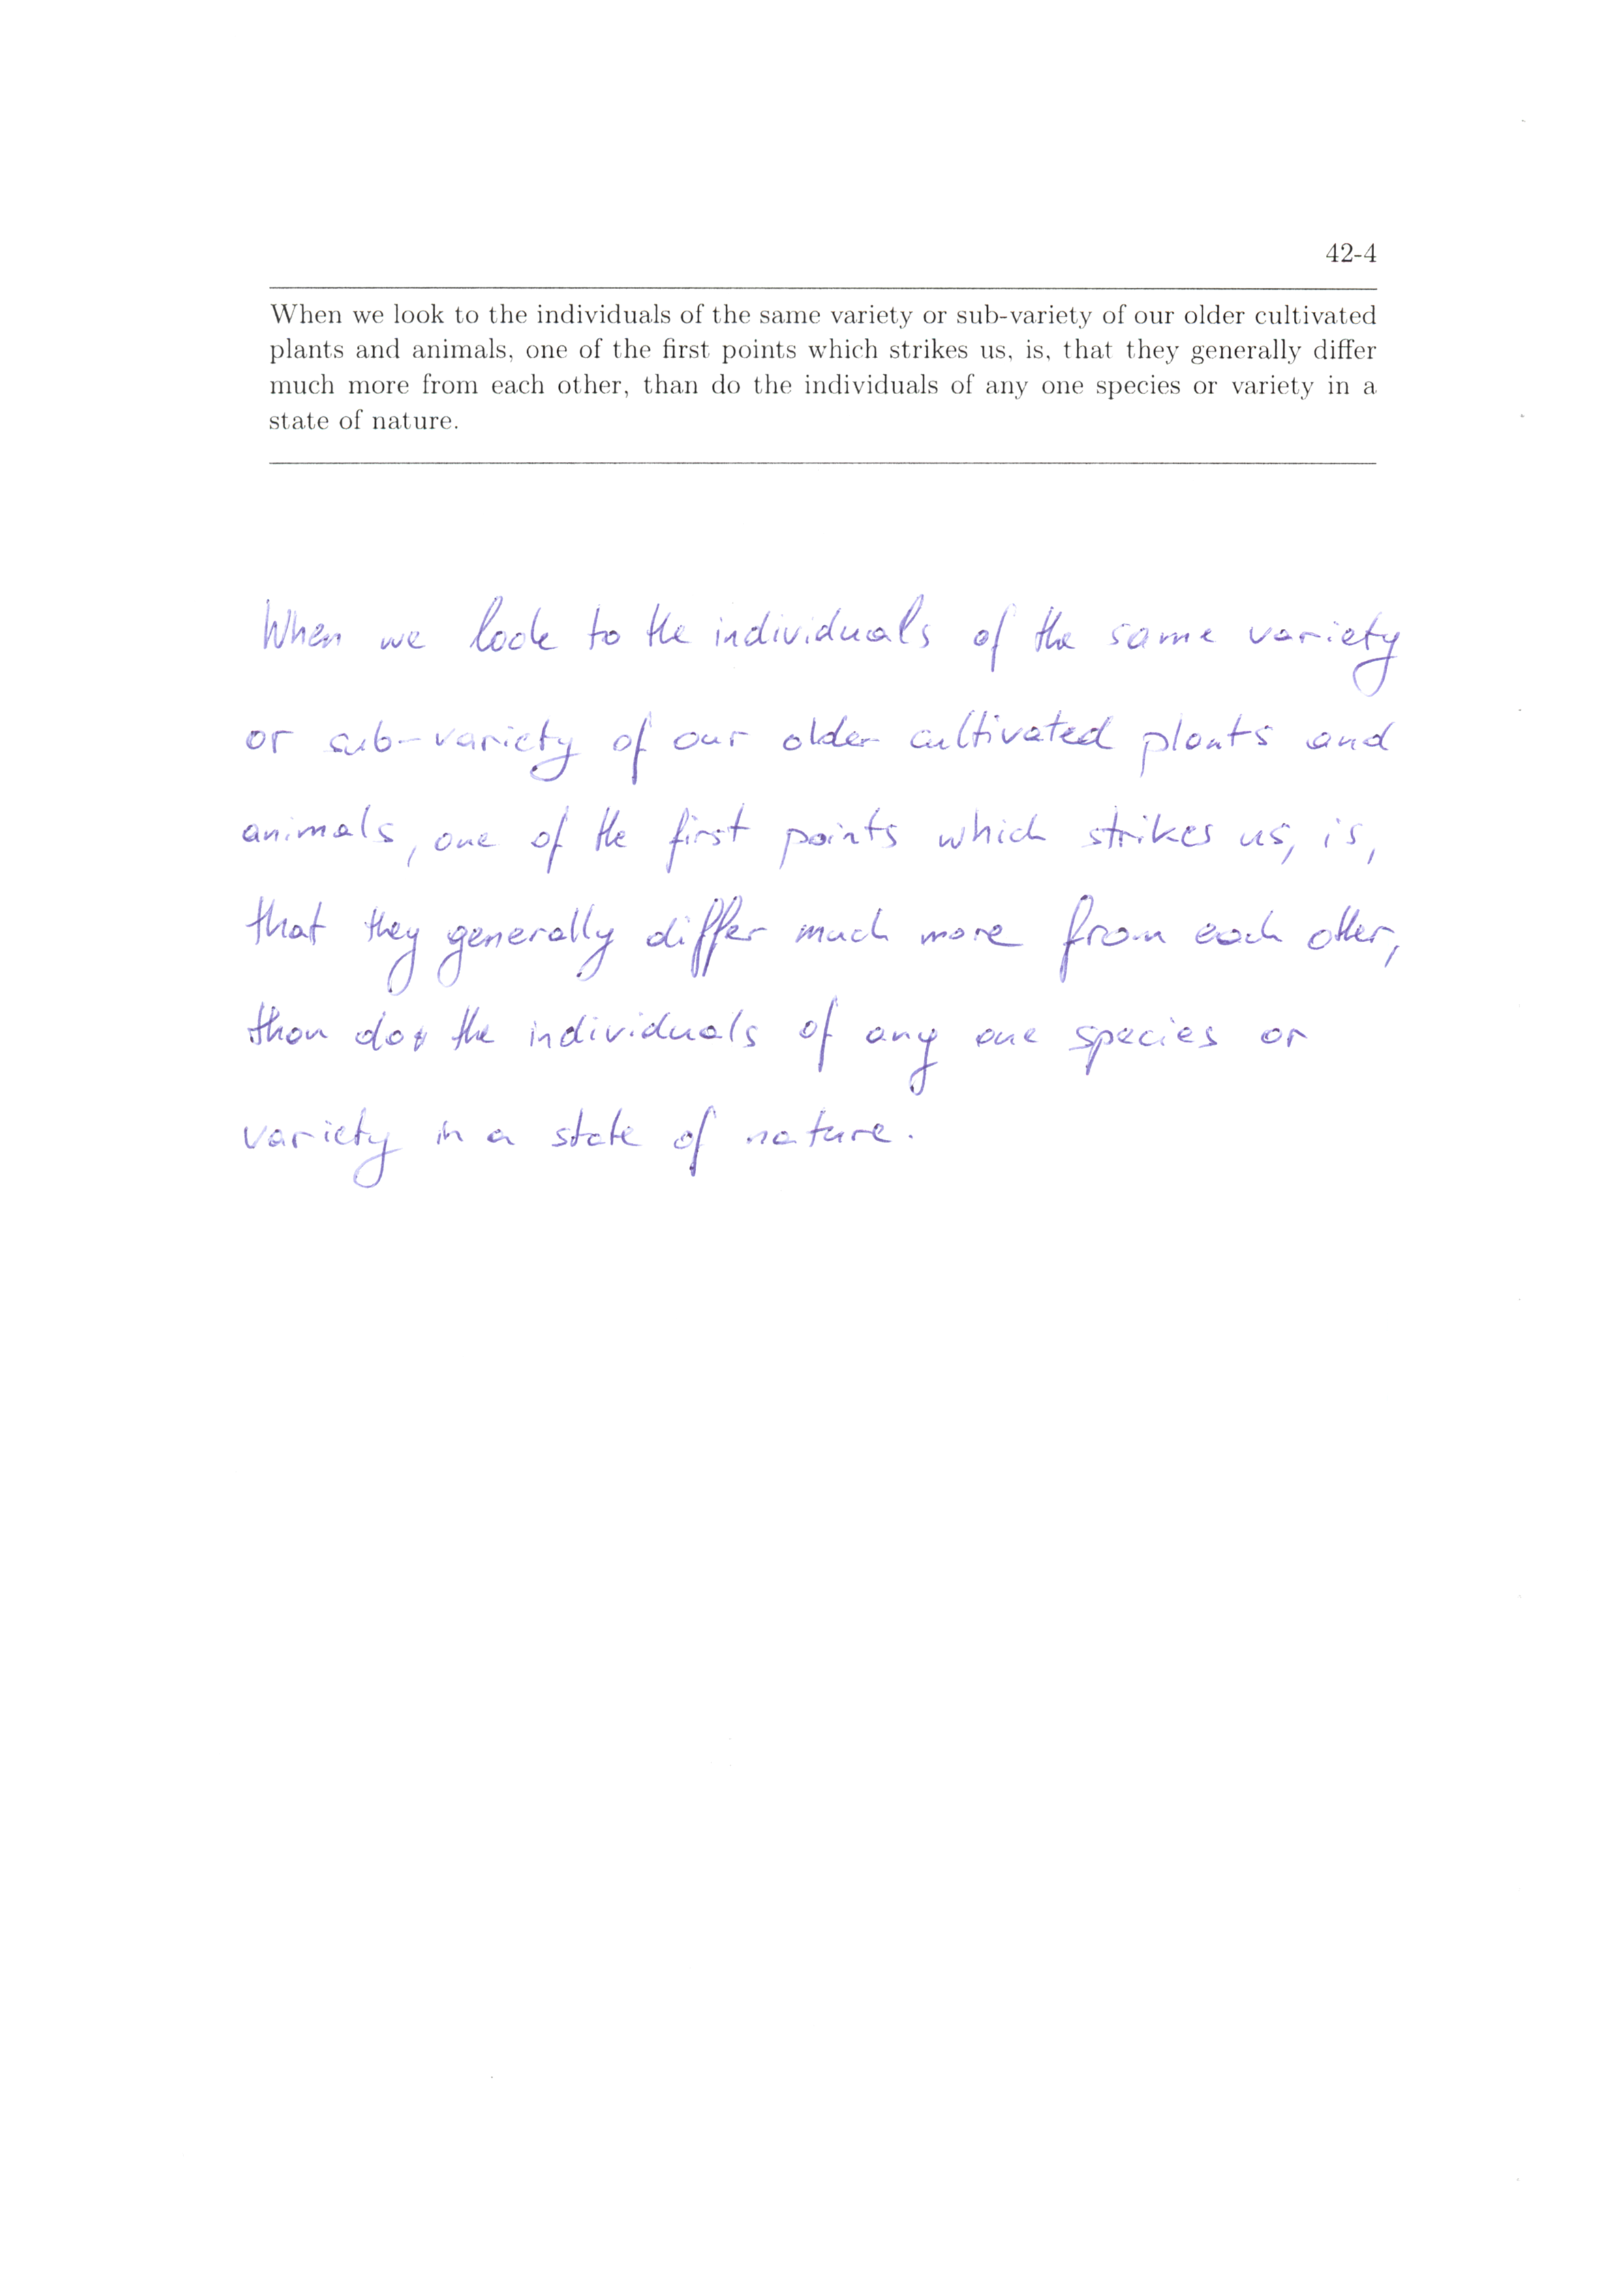 42-4
When we look to the individuals of the same variety or sub-variety of our older cultivated
plants and animals, one of the first points which strikes us, is, that they generally differ
much more from each other, than do the individuals of any one species or variety in a
state of nature.
When we look to the individuals of the same variety
or sub-variety of our older cultivated plants and
animals, one of the first points which strikes us, is,
that they generally differ much more from each other,
than do the individuals of any one species or
variety in a state of nature.